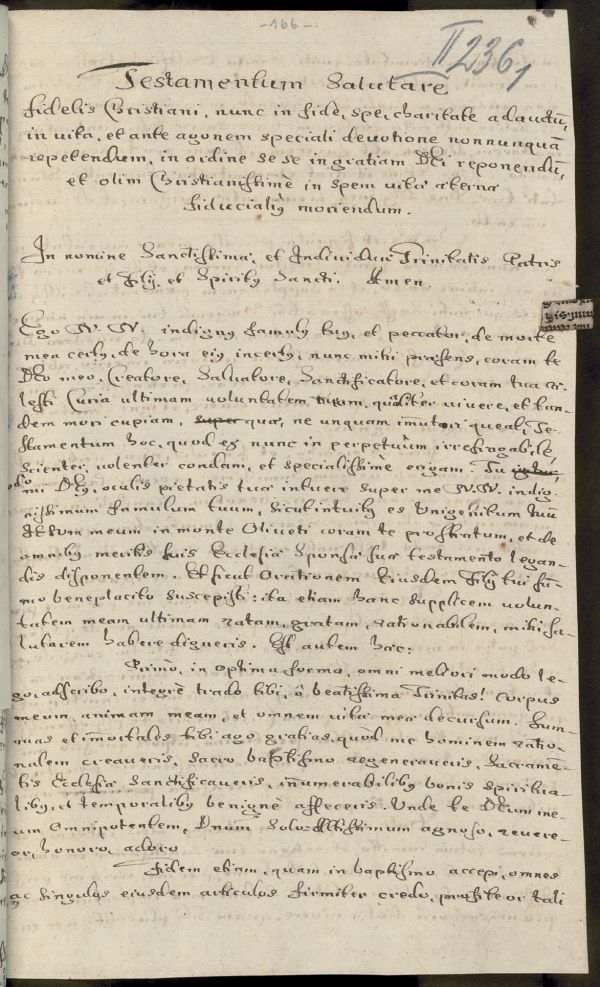 -166-.
II 236,
Testamentum Salutare
fidelis Christiani, nunc in fide, spe, charitate adauctū,
in vita, et ante agonem speciali devotione nonnunquā
repetendum, in ordine se se in gratiam Dei reponendū,
et olim Christianissimè in spem vitæ æternæ
fiducialiꝰ moriendum.
In nomine Sanctissimæ, et Individuæ Trinitatis Patris
et Filij, et Spiritꝰ Sancti. Amen.
Ego N. N. indignꝰ famulꝰ tuꝰ, et peccator, de morte
mea certꝰ, de hora eiꝰ incertꝰ, nunc mihi præsens, coram te
Deo meo, Creatore, Salvatore, Sanctificatore, et coram tua cæ-
lesti Curia ultimam voluntatem meam, qualiter vivere, et tan-
dem mori cupiam, super quæ, ne unquam imutari queat, Te-
stamentum hoc, quod ex nunc in perpetuùm irrefragabile,
scienter, volenter condam, et specialissimè erigam. Tu igitur,
mi Deꝰ, oculis pietatis tuæ intuere super me N. N. indig-
nissimum famulum tuum, sicut intuitꝰ es Unigenitum tuū
Iesum meum in monte Oliveti coram te prostratum, et de
omnibꝰ meritis suis Ecclesiæ Sponsæ suæ testamento legan-
dis disponentem. Et sicut Orationem Eiusdem Filij tui sū-
mo beneplacito suscepisti: ita etiam hanc supplicem volun-
tatem meam ultimam ratam, gratam, rationabilem, mihi sa-
lutarem habere digneris. Est autem hæc:
Primò, in optima forma, omni meliori modo le-
go, adscribo, integrè trado tibi, ô beatissima Trinitas! corpus
meum, animam meam, et omnem vitæ meæ decursum. Sum-
mas et immortales tibi ago gratias, quod me hominem ratio-
nalem creaveris, sacro baptismo regeneraveris, Sacramē-
tis Ecclesiæ Sanctificaveris, inumerabilibꝰ bonis spiritua-
libꝰ, et temporalibꝰ benignè affeceris. Unde te Deum me-
um Omnipotentem, Dnum agnosco, revere-
or, honoro, adoro
Fidem etiam, quam in baptismo accepi, omnes
ac singulos eiusdem articulos firmiter credo, profiteor tali